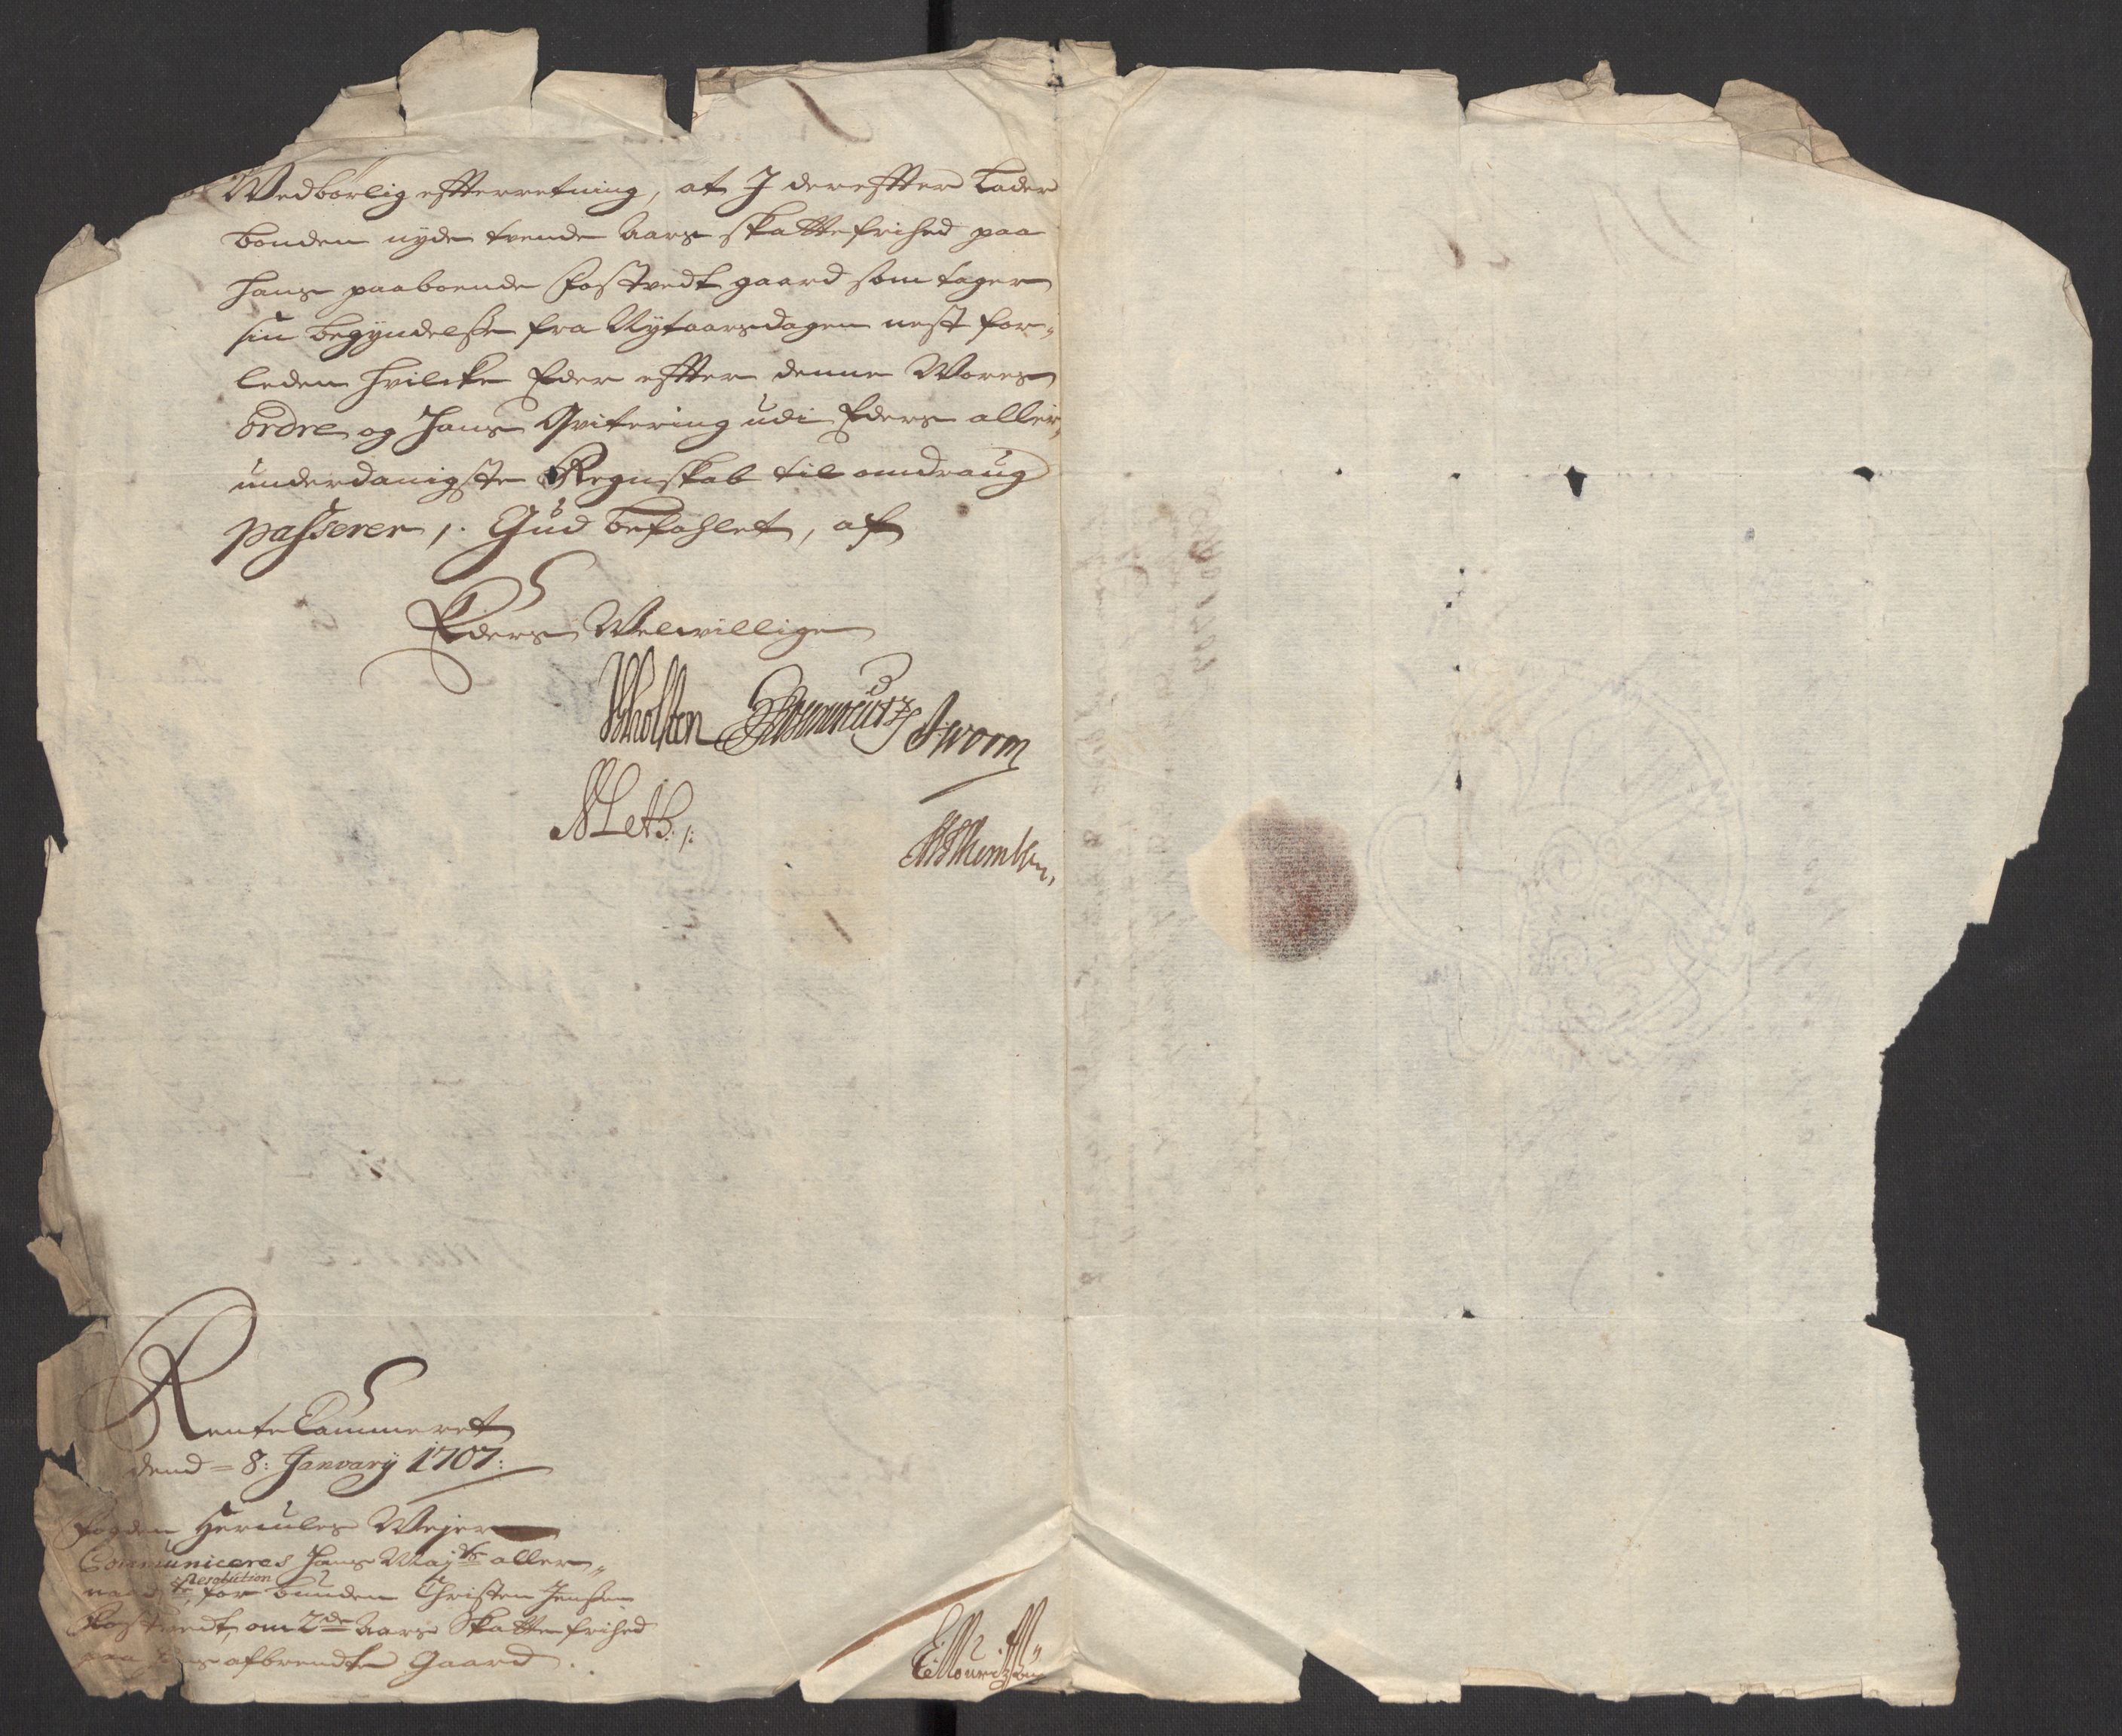 Wedbørlig efterretning, at I derefter Lader
bonden nyde tvende aars skattefrihed paa
hans paaboende Fostvedt gaard som tager
sin begyndelsse fra Nytaarsdagen nest for-
leden hvilcke Eder efter denne Vores
ordre og hans Qvitering udi Eders aller-
underdanigste Regnskab til omdraug
passerer /. Gud befahlet, af
Eders Velvillige
Worm
Rente Cammeret
dend = 8: January 1707:
Fogden Hercules Weyer
Communiceres Hans Mayts aller-
Resolution
for bunden Christen Jensen
Fostvedt, om 2de aars Skatte frihed
paa hans afbrendte Gaard.